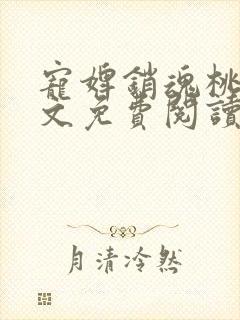 寵婢銷魂桃
文免費閱讀
月清冷然